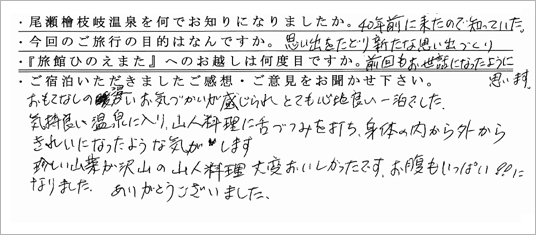 ・尾瀬檜枝岐温泉を何でお知りになりましたか。40年前に来たので知っていた。
・今回のご旅行の目的はなんですか。思い出をたどり新たな思い出づくり
・『旅館ひのえまた』へのお越しは何度目ですか。前回もお世話になったように思います。
・ご宿泊いただきましたご感想・ご意見をお聞かせ下さい。
おもてなしの深いお気づかいが感じられとても心地良い一泊でした。
気持良い温泉に入り、山人料理に舌づつみを打ち、身体の内から外から
きれいになったような気がします
珍しい山菜が沢山の山人料理大変おいしかったです。お腹もいっぱい!!に
なりました。ありがとうございました。